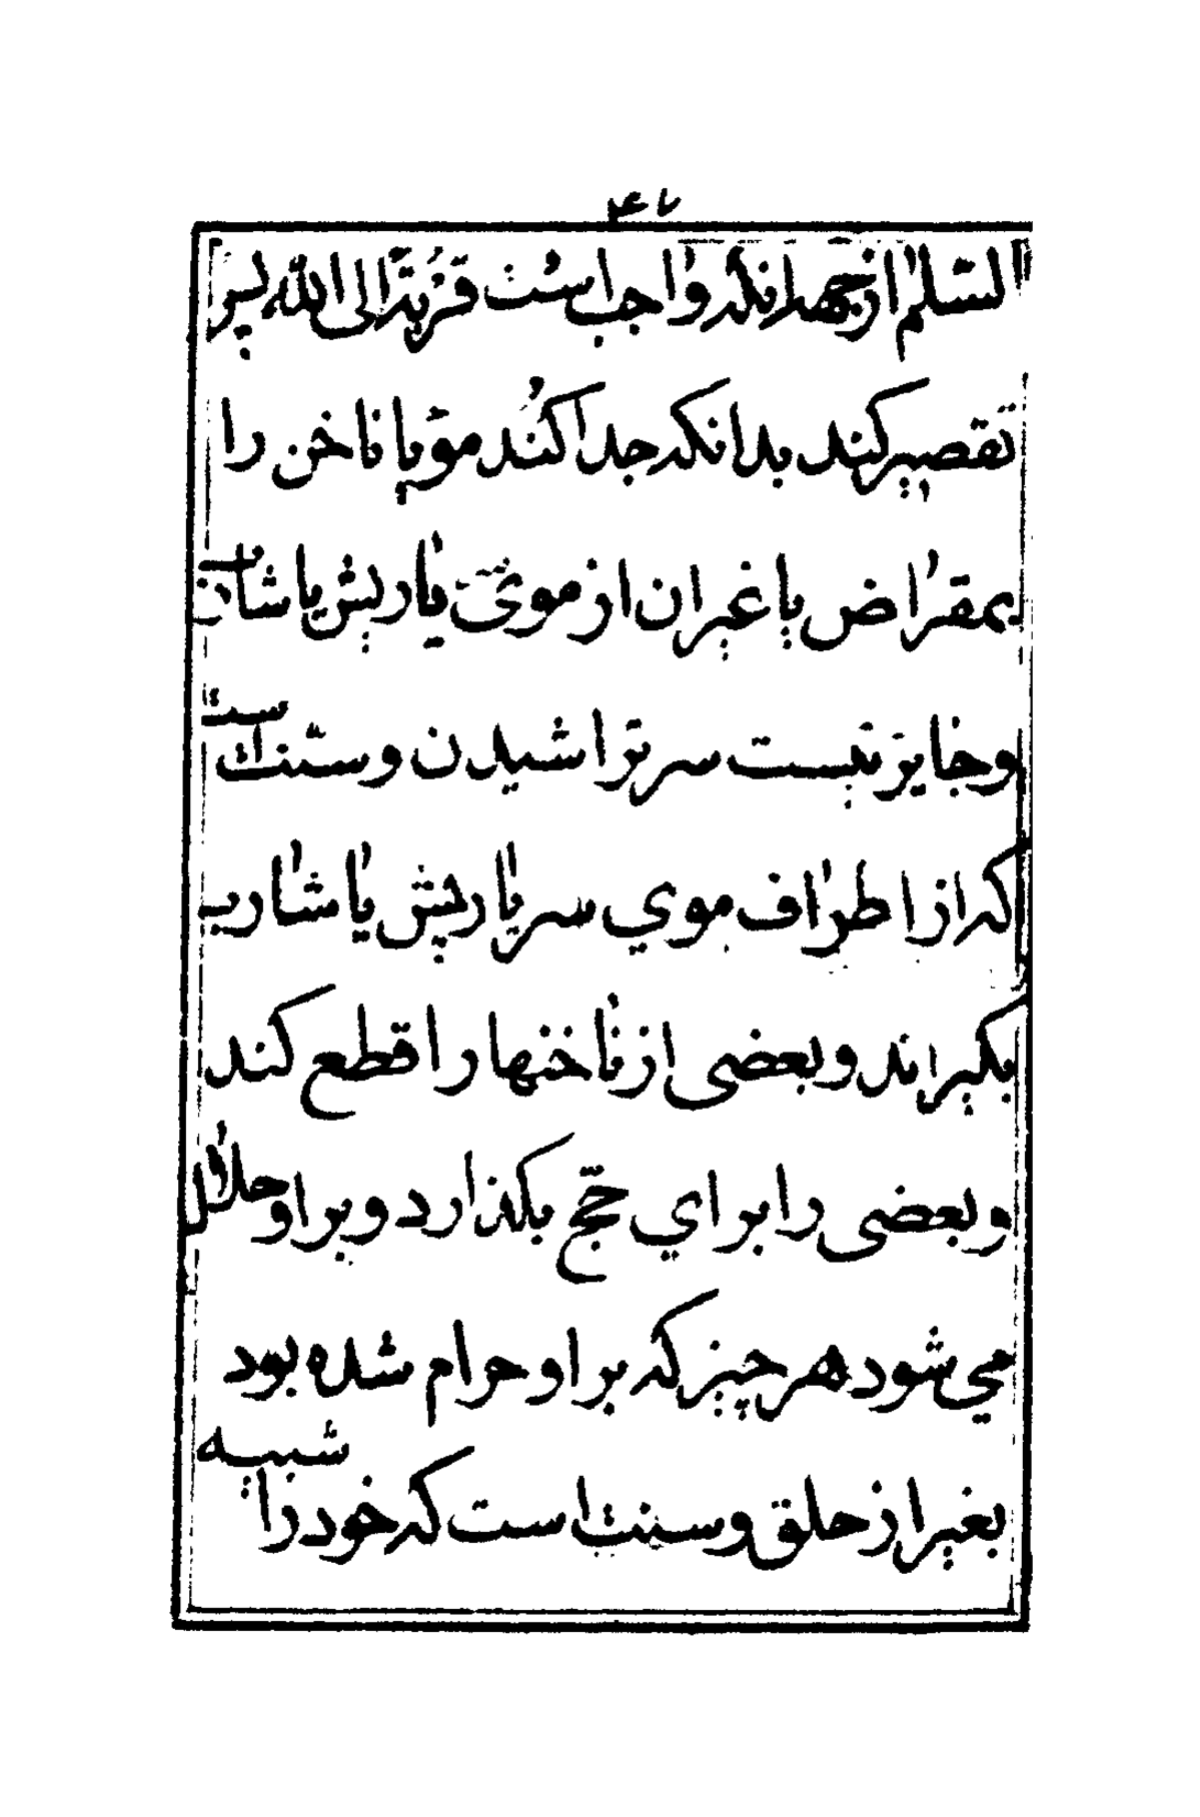 السّلم از جهة انکه واجب است قربة الی الله پس
تقصیر کند بدانکه جدا کند مو یا ناخن را
بمقراض یا غیر ان از موی یا ریش یا شارب
وجایز نیست سر تراشیدن وسنّت است
که از اطراف موی سر یا ریش یا شارب
بکیراند وبعضی از ناخنها را قطع کند
وبعضی را برای حجّ بکذارد وبر او حلال
می شود هر چیز که بر او حرام شده بود
بغیر از حلق وسنت است که خود را شبیه